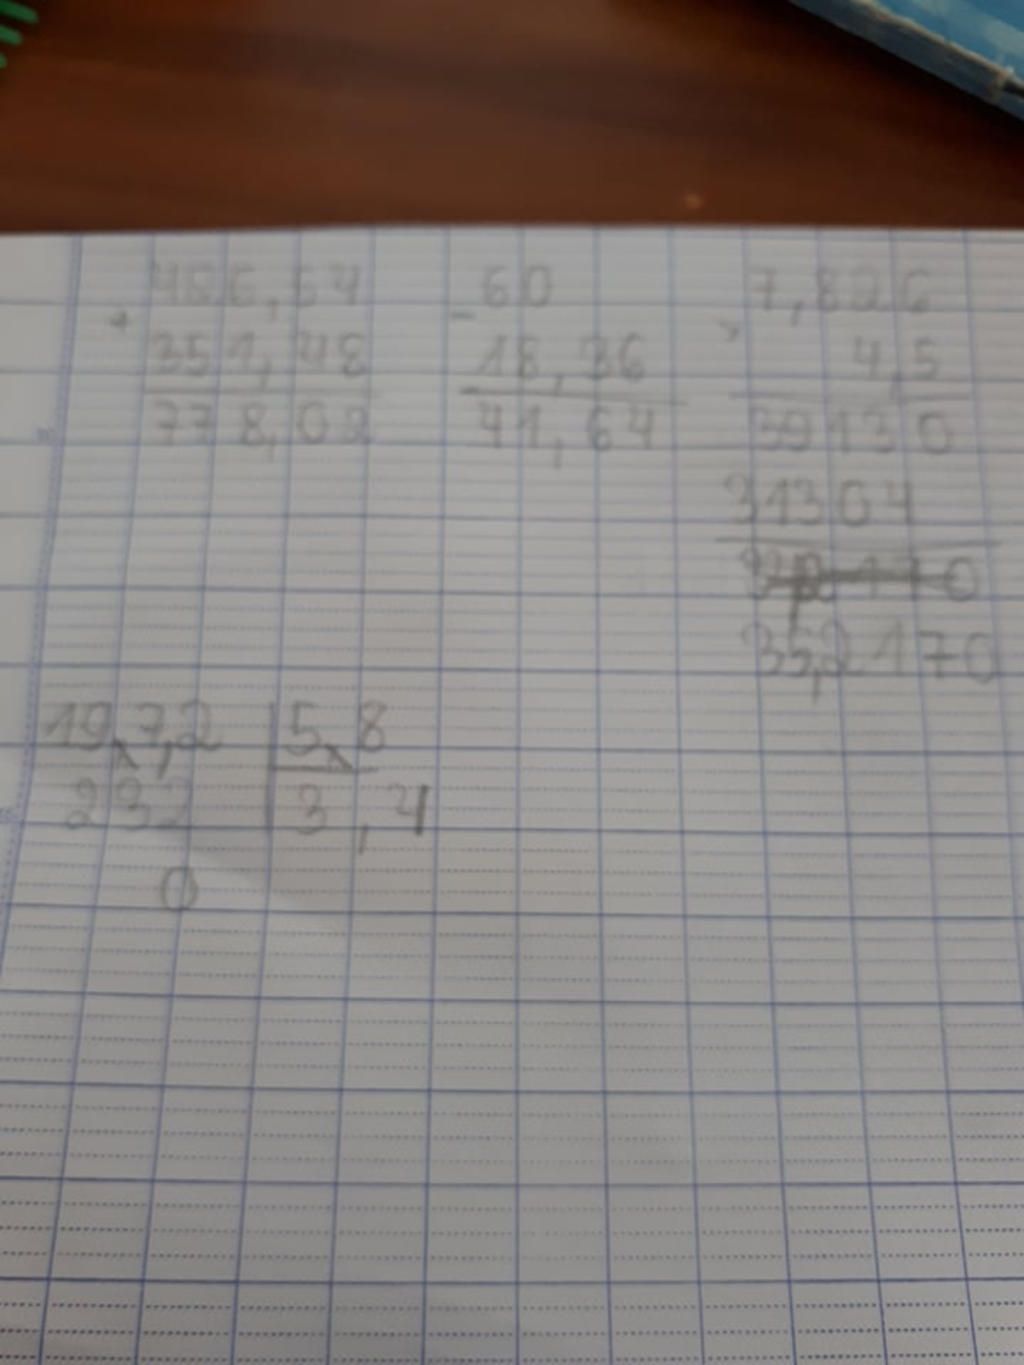 + 486,54
351,48
778,02
- 60
18,36
41,64
x 7,826
4,5
39130
31304
35,2170
19,7,2 | 5,8
232 | 3,4
0